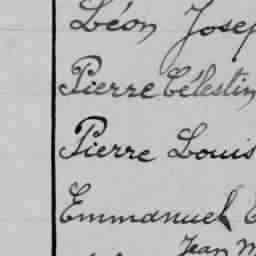 Léon Josep
Pierre Célestin
Pierre Louis
Emmanuel
Jean M